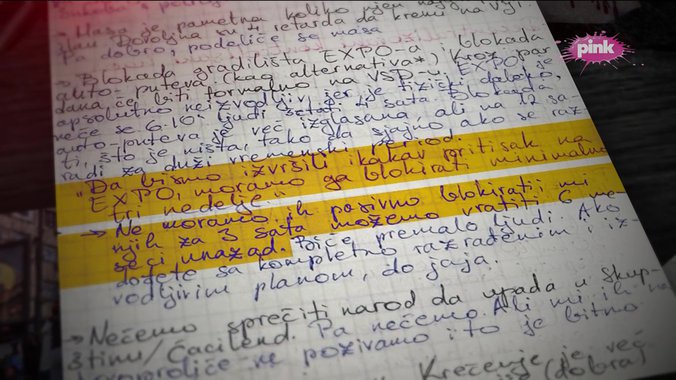 → Masa je pametna koliko njen najgluplji
član. Dovoljna su 4 retarda da krenu
pa dobro, podeliće se masa
→ Blokada gradilišta EXPO-a i blokada
auto-puteva (kao alternativa*) kroz par
dana će biti formalno na VSP-u. EXPO je
apsolutno neizvodljiv jer je fizički daleko,
neće se 6-10 ljudi šetati 4 sata. Blokada
auto-puteva je već izglasana ali na 12 sa-
ti, što je ništa, tako da sjajno ako se raz-
radi za duži vremenski period.
"Da bismo izvršili ikakav pritisak na
EXPO, moramo ga blokirati minimalno
tri nedelje".
→ Ne moramo ih pasivno blokirati, mi
njih za 3 sata možemo vratiti 6 me-
seci unazad. Biće premalo ljudi. Ako
dođete sa kompletno razrađenim i iz-
vodljivim planom, do jaja.
→ Nećemo sprečiti narod da upada u skup-
štinu/Ćacilend. Pa nećemo. Ali mi ih na
ne pozivamo i to je bitno.
Krečenje je već
(dobra)
pink